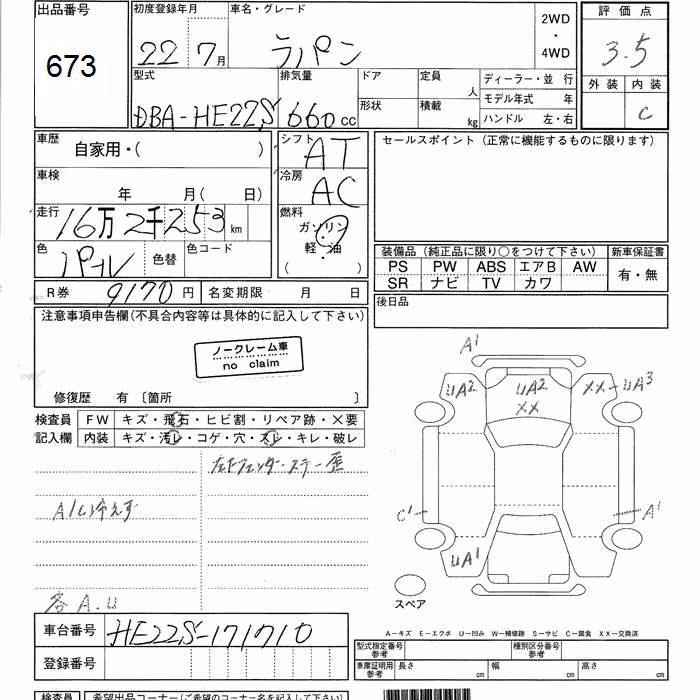 出品番号
673
初度登録年月
22 7月
車名・グレード
ラパン
2WD
・
4WD
評価点
3.5
外装 内装
C
型式
DBA-HE22S
排気量
660 cc
ドア
形状
定員
人
積載
kg
ディーラー・並 行
モデル年式 年
ハンドル 左・右
車歴
自家用・( )
車検
年 月( 日)
走行
16万2千253 km
色
パール
色替
色コード
R券 9170円
名変期限 月 日
シフト
AT
冷房
AC
燃料
ガソリン
・
軽 油
( )
セールスポイント(正常に機能するものに限ります)
装備品(純正品に限り○をつけて下さい)
PS PW ABS エアB AW
SR ナビ TV カワ
新車保証書
有・無
後日品
注意事項申告欄(不具合内容等は具体的に記入して下さい)
ノークレーム車
no claim
修復歴 有 〔箇所 〕
検査員
記入欄
FW キズ・飛石・ヒビ割・リペア跡・×要
内装 キズ・汚レ・コゲ・穴・スレ・キレ・破レ
左Fフェンダーステー歪
A/C冷えず
各A.U
A1
UA2
UA2
XX
XX
UA3
C1
A1
UA1
スペア
A-キズ E-エクボ U-凹み W-補修跡 S-サビ C-腐食 XX-交換済
車台番号
HE22S-171710
登録番号
型式指定番号
参考
種別区分番号
参考
車庫証明用
参考
長さ cm
幅 cm
高さ cm
検査員
希望出品コーナー(ご希望のコーナー名を記入して下さい)